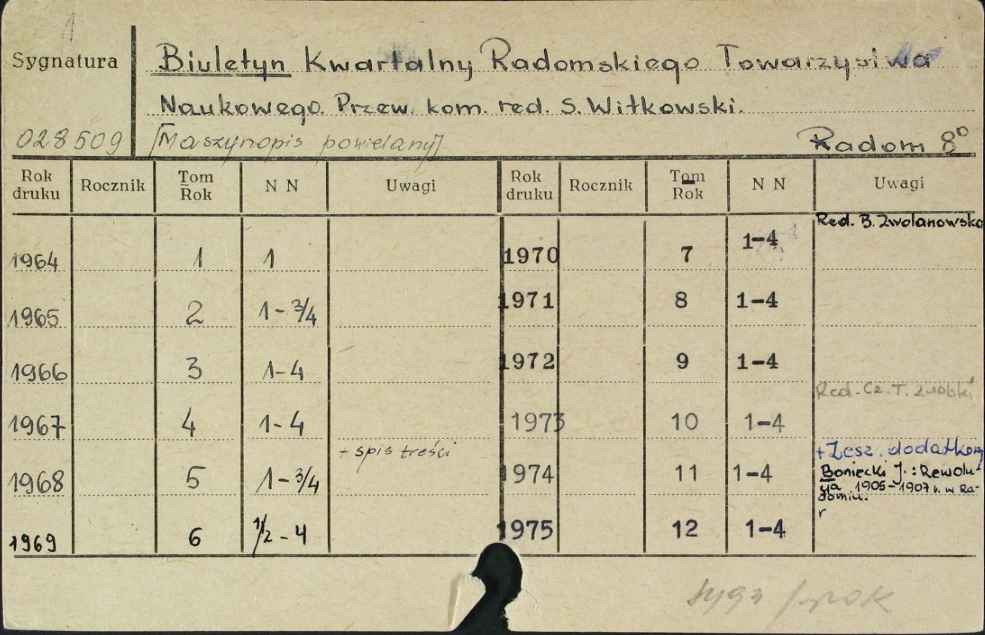 1
Sygnatura
Biuletyn Kwartalny Radomskiego Towarzystwa
Naukowego. Przew. kom. red. S. Witkowski.
028509 [Maszynopis powielany] Radom 8º
Rok druku Rocznik Tom Rok N N Uwagi Rok druku Rocznik Tom Rok N N Uwagi
Red. B. Zwolanowska
1964 1 1 1970 7 1-4
1965 2 1-3/4 1971 8 1-4
1966 3 1-4 1972 9 1-4
Red. Cz. T.
1967 4 1-4 1973 10 1-4
+ spis treści + Zesz. dodatkowy
1968 5 1-3/4 1974 11 1-4 Boniecki J.: Rewolu-
cja 1905-1907 r. w Ra-
domiu.
1969 6 1/2-4 1975 12 1-4